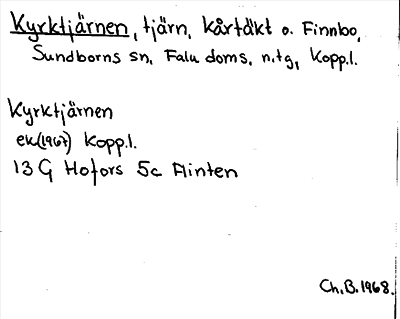 Kyrktjärnen, tjärn, Kårtäkt o. Finnbo,
Sundborns sn, Falu doms. n.tg, Kopp.l.
Kyrktjärnen
ek(1967) Kopp.l.
13 G Hofors 5c Ainten
Ch.B.1968.